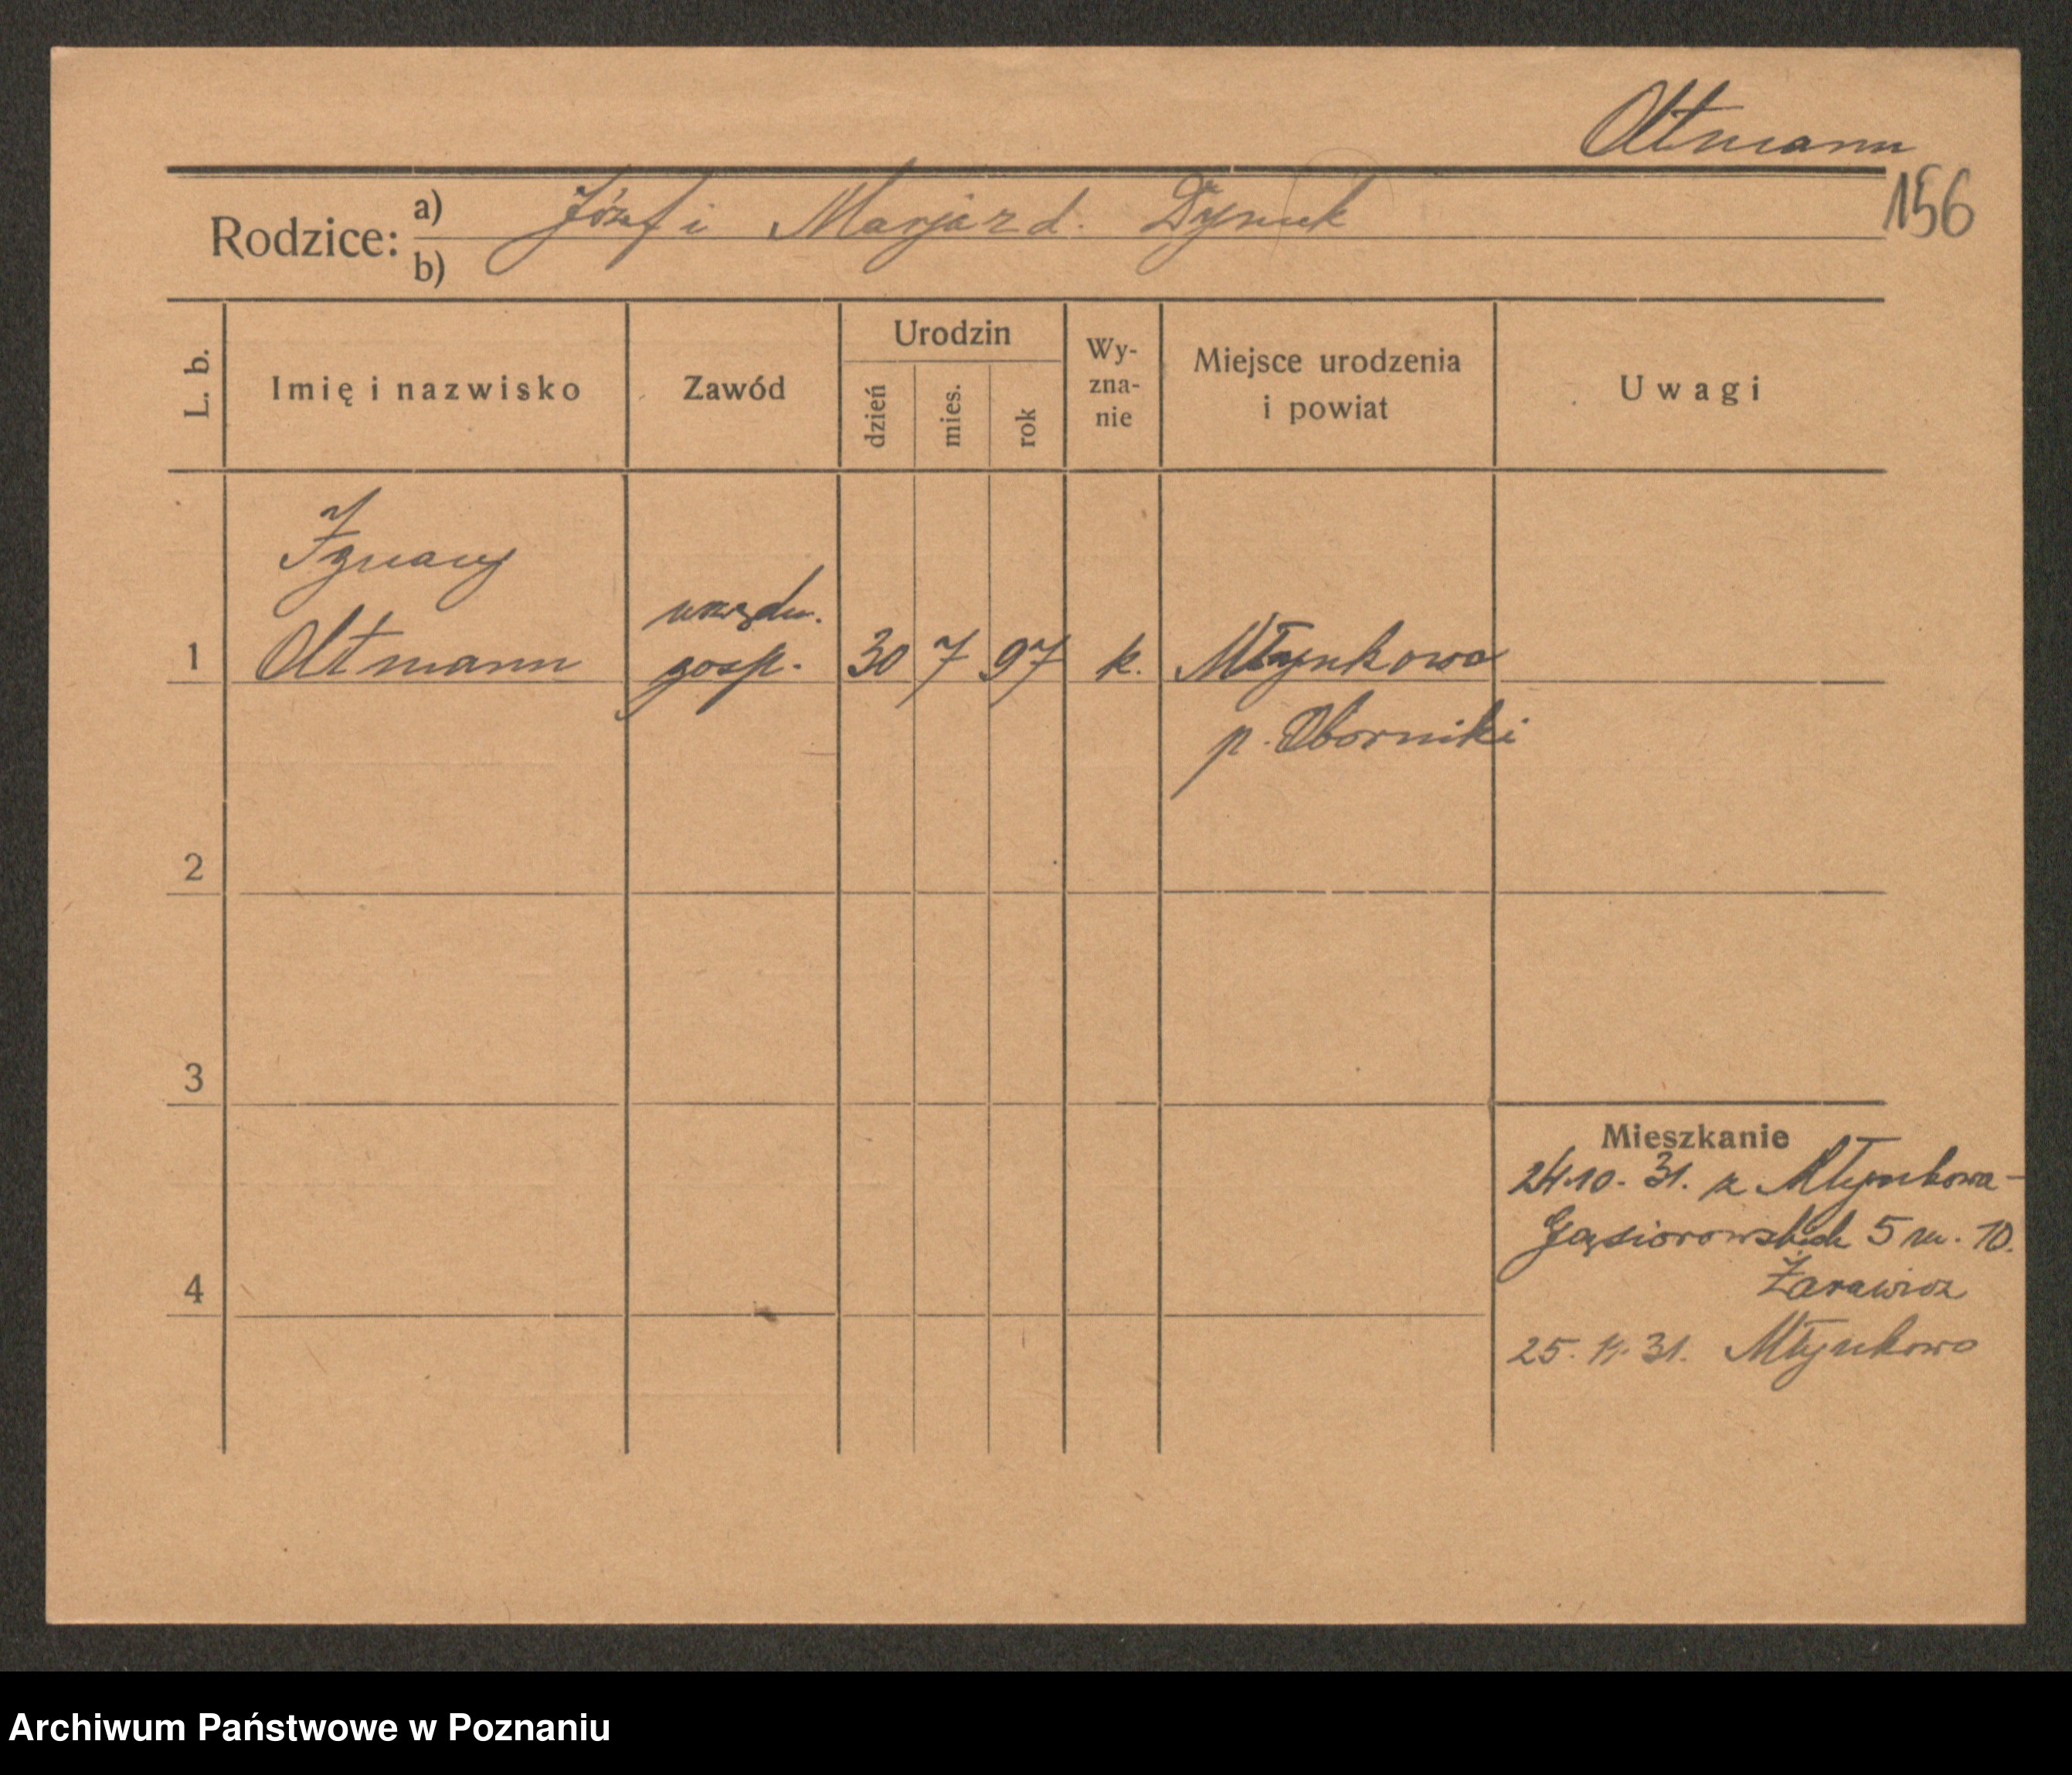 Oltmann
156
Rodzice: a) Józef i Marja z d. Dymek
b)
L. b. Imię i nazwisko Zawód Urodzin dzień mies. rok Wy-zna-nie Miejsce urodzenia i powiat Uwagi
Ignacy
urzędn.
1 Oltmann gosp. 30 7 97 k. Młynkowo
p. Oborniki
2
3
Mieszkanie
24.10.31. z Młynkowa-
Gąsiorowskich 5 m. 10.
4
25. 11. 31. Młynkowo
Archiwum Państwowe w Poznaniu